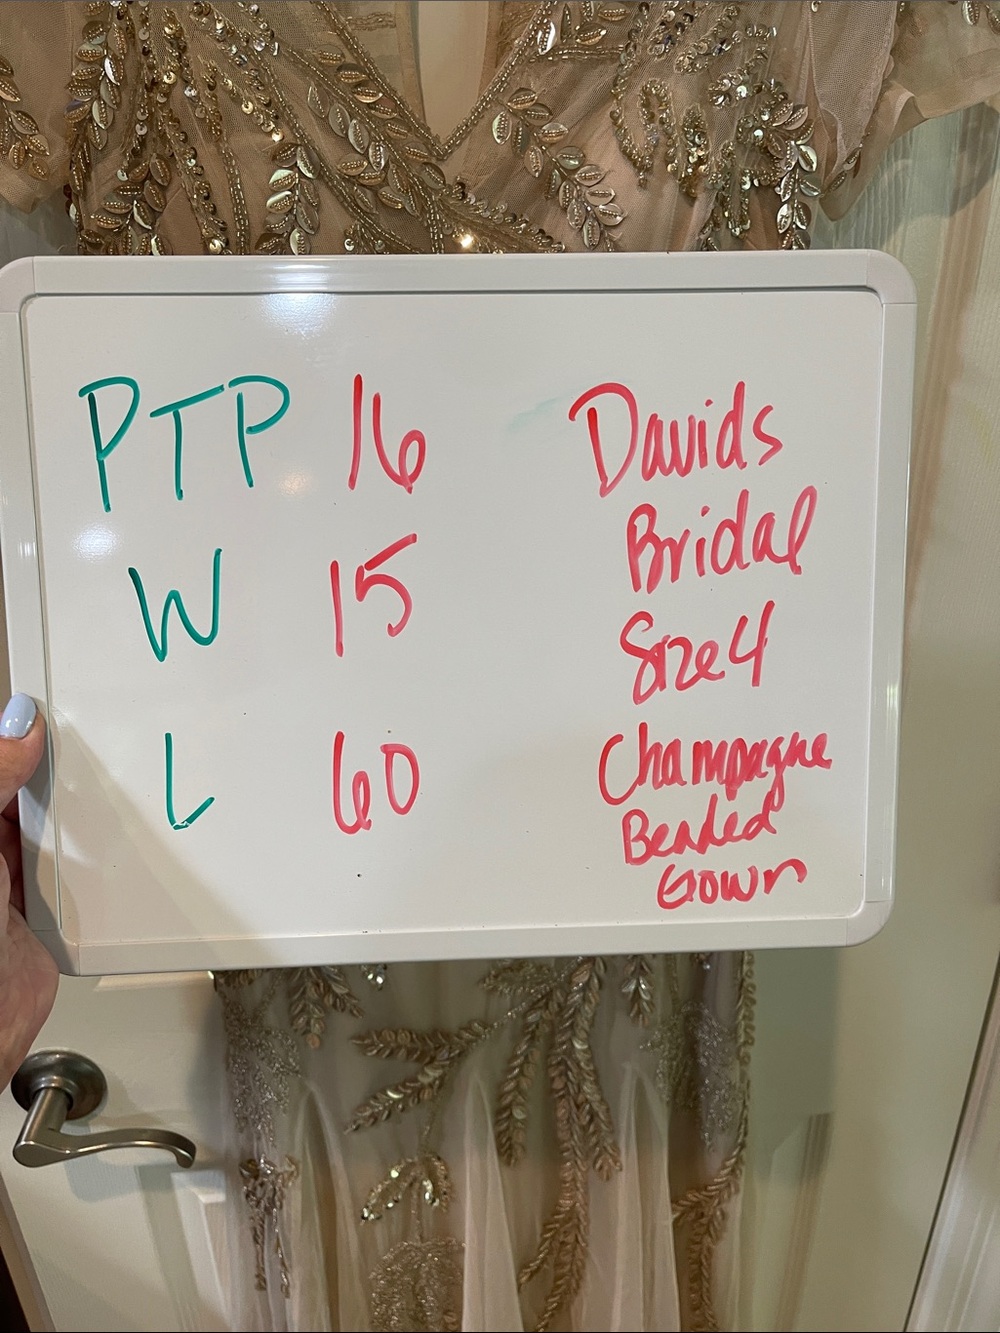 PTP 16
W 15
L 60
Davids
Bridal
Size 4
Champagne
Beaded
Gown